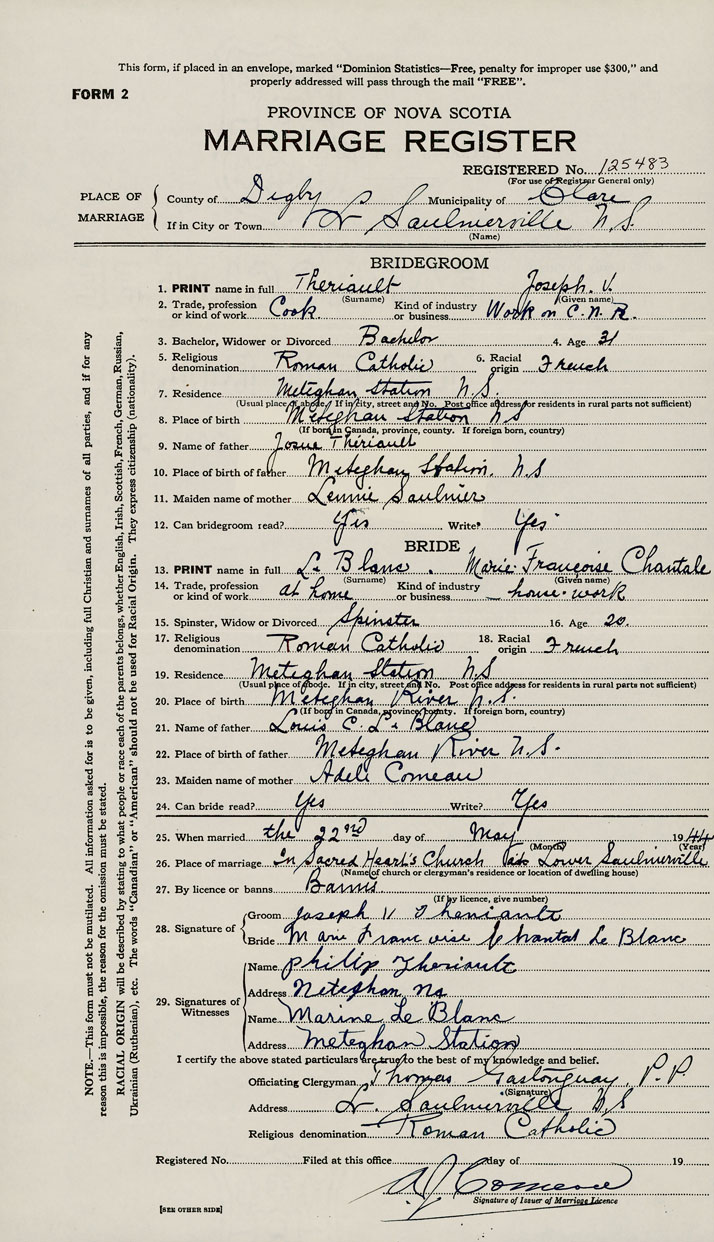 This form, if placed in an envelope, marked "Dominion Statistics—Free, penalty for improper use $300," and
properly addressed will pass through the mail "FREE".
FORM 2
PROVINCE OF NOVA SCOTIA
MARRIAGE REGISTER
REGISTERED No. 125483
(For use of Registrar General only)
PLACE OF MARRIAGE
County of Digby Municipality of Clare
If in City or Town L. Saulnierville N.S.
(Name)
BRIDEGROOM
1. PRINT name in full Theriault Joseph. V.
(Surname) (Given name)
2. Trade, profession or kind of work Cook Kind of industry or business Work on C.N.R.
3. Bachelor, Widower or Divorced Bachelor 4. Age 31
5. Religious denomination Roman Catholic 6. Racial origin French
7. Residence Meteghan Station N.S.
(Usual place of abode. If in city, street and No. Post office address for residents in rural parts not sufficient)
8. Place of birth Meteghan Station NS
(If born in Canada, province, county. If foreign born, country)
9. Name of father Josue Theriault
10. Place of birth of father Meteghan Station. N.S
11. Maiden name of mother Lennie Saulnier
12. Can bridegroom read? Yes Write? Yes
BRIDE
13. PRINT name in full Le Blanc. Marie-Françoise Chantale
(Surname) (Given name)
14. Trade, profession or kind of work at home Kind of industry or business house-work
15. Spinster, Widow or Divorced Spinster 16. Age 20.
17. Religious denomination Roman Catholic 18. Racial origin French
19. Residence Meteghan Station N.S
(Usual place of abode. If in city, street and No. Post office address for residents in rural parts not sufficient)
20. Place of birth Meteghan River N.S.
(If born in Canada, province, county. If foreign born, country)
21. Name of father Louis C. Le Blanc
22. Place of birth of father Meteghan River N.S.
23. Maiden name of mother Adele Comeau
24. Can bride read? Yes Write? Yes
25. When married the 22nd day of May 1944
(Month) (Year)
26. Place of marriage In Sacred Heart's Church Lower Saulnierville
(Name of church or clergyman's residence or location of dwelling house)
27. By licence or banns Banns
(If by licence, give number)
28. Signature of
Groom Joseph V Theriault
Bride Marie Francoise Chantal Le Blanc
29. Signatures of Witnesses
Name Philip Theriault
Address Meteghan NS
Name Marine Le Blanc
Address Meteghan Station
I certify the above stated particulars are true to the best of my knowledge and belief.
Officiating Clergyman Thomas Gastonguay, P.P.
(Signature)
Address L. Saulnierville N.S
Religious denomination Roman Catholic
Registered No. Filed at this office day of 19
A J Comeau
Signature of Issuer of Marriage Licence
[SEE OTHER SIDE]
NOTE.—This form must not be mutilated. All information asked for is to be given, including full Christian and surnames of all parties, and if for any
reason this is impossible, the reason for the omission must be stated.
RACIAL ORIGIN will be described by stating to what people or race each of the parents belongs, whether English, Irish, Scottish, French, German, Russian,
Ukrainian (Ruthenian), etc. The words "Canadian" or "American" should not be used for Racial Origin. They express citizenship (nationality).